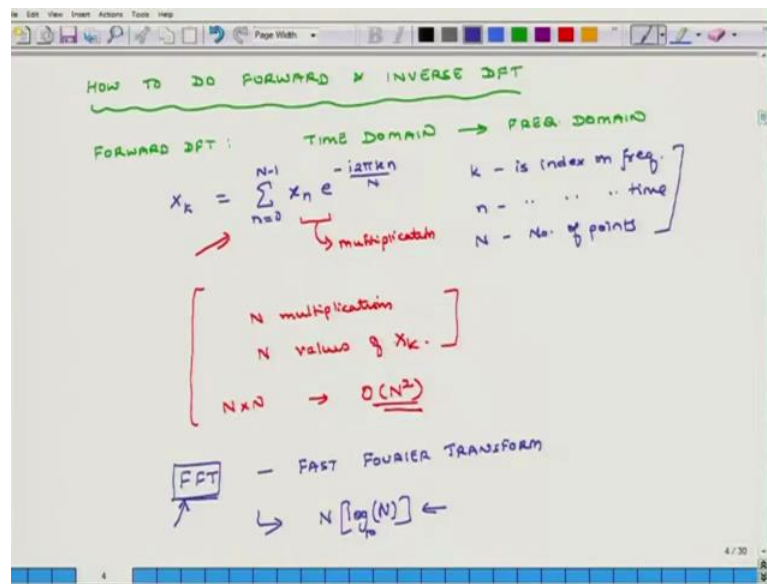 File Edit View Insert Actions Tools Help
Page Width
HOW TO DO FORWARD & INVERSE DFT
FORWARD DFT : TIME DOMAIN → FREQ. DOMAIN
X_k = Σ_{n=0}^{N-1} x_n e^{-i2πkn/N}
multiplication
k - is index on freq.
n - " " " time
N - No. of points
N multiplication
N values of X_k.
N×N → O(N²)
FFT - FAST FOURIER TRANSFORM
↳ N [log₁₀(N)] ←
4/30
4